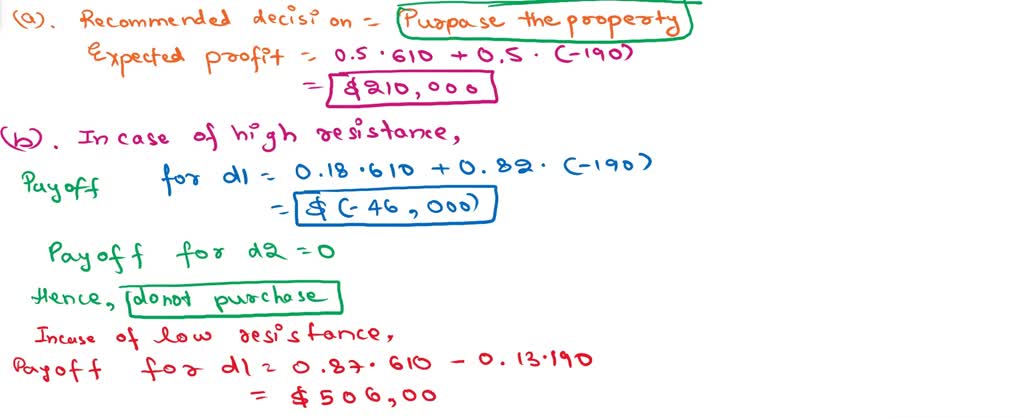 (a). Recommended decision = Purpase the property
Expected profit = 0.5 · 610 + 0.5 · (-190)
= $210,000
(b). In case of high resistance,
Payoff for d1 = 0.18 · 610 + 0.82 · (-190)
= $ (-46,000)
Payoff for d2 = 0
Hence, do not purchase
Incase of low resistance,
Payoff for d1 = 0.87 · 610 - 0.13 · 190
= $506,00